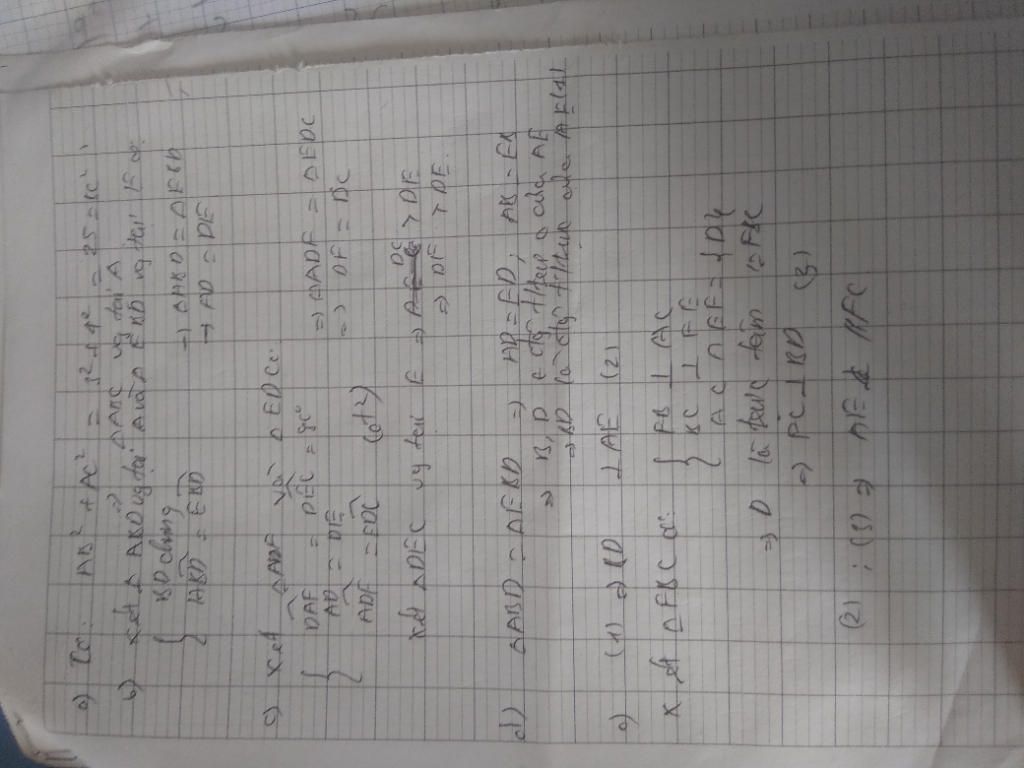 a) Tc: AB² + AC² = 3² + 4² = 25 = BC²
=> ΔABC vg tại A
b) Xét Δ ABD vg tại A và Δ EBD vg tại E có:
{ BD chung
ABD = EBD
=> ΔABD = ΔEBD
=> AD = DE
c) Xét ΔADF và Δ EDC có:
{ DAF = DEC = 90°
AD = DE
ADF = EDC (đđ)
=> ΔADF = ΔEDC
=> DF = DC
Xét ΔDEC vg tại E => DC > DE
=> DF > DE.
d) ΔABD = ΔEBD => AD = ED; AB = EB
=> B, D ∈ đg trực của AE
=> BD là đg trực của AE (1)
e) (1) => BD ⊥ AE (2)
Xét Δ FBC có: { FB ⊥ AC
BC ⊥ FE
AC ∩ FE = {D}
=> D là trực tâm ΔFBC
=> FC ⊥ BD (3)
(2); (3) => AE // FC